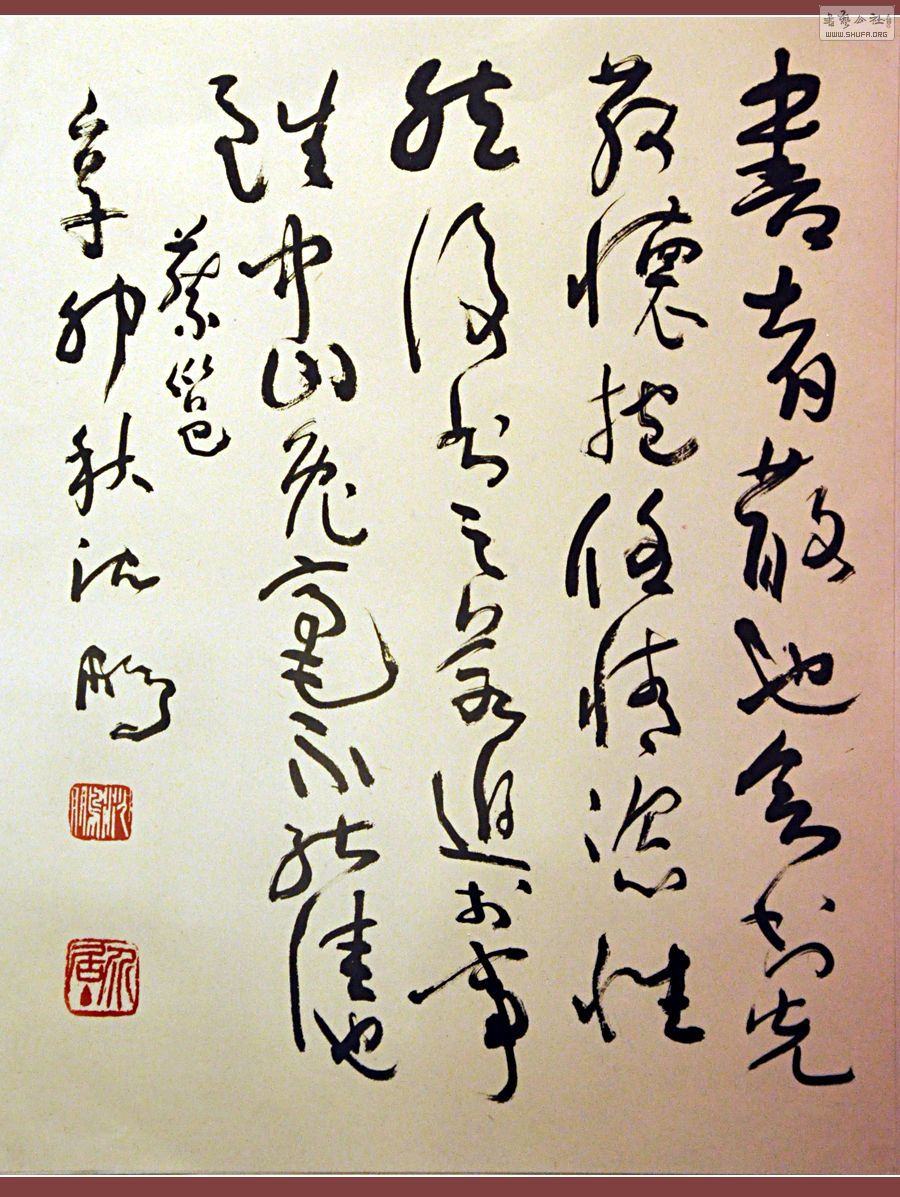 書者散也欲書先
散懷抱任情恣性
然後書之若迫於事
雖中山兔毫不能佳也
蔡邕
辛卯秋沈鵬
沈鵬
書藝公社
WWW.SHUFA.ORG